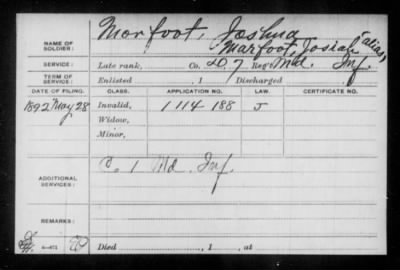 Morfoot, Joshua
NAME OF SOLDIER: Marfoot, Josiah (alias)
SERVICE: Late rank, Co. D, 7 Reg't Md. Inf.
TERM OF SERVICE: Enlisted , 1 Discharged
DATE OF FILING. CLASS. APPLICATION NO. LAW. CERTIFICATE NO.
1892 May 28 Invalid, 1114 188 J
Widow,
Minor,
ADDITIONAL SERVICES: C. 1 Md. Inf.
REMARKS:
Died , 1 , at